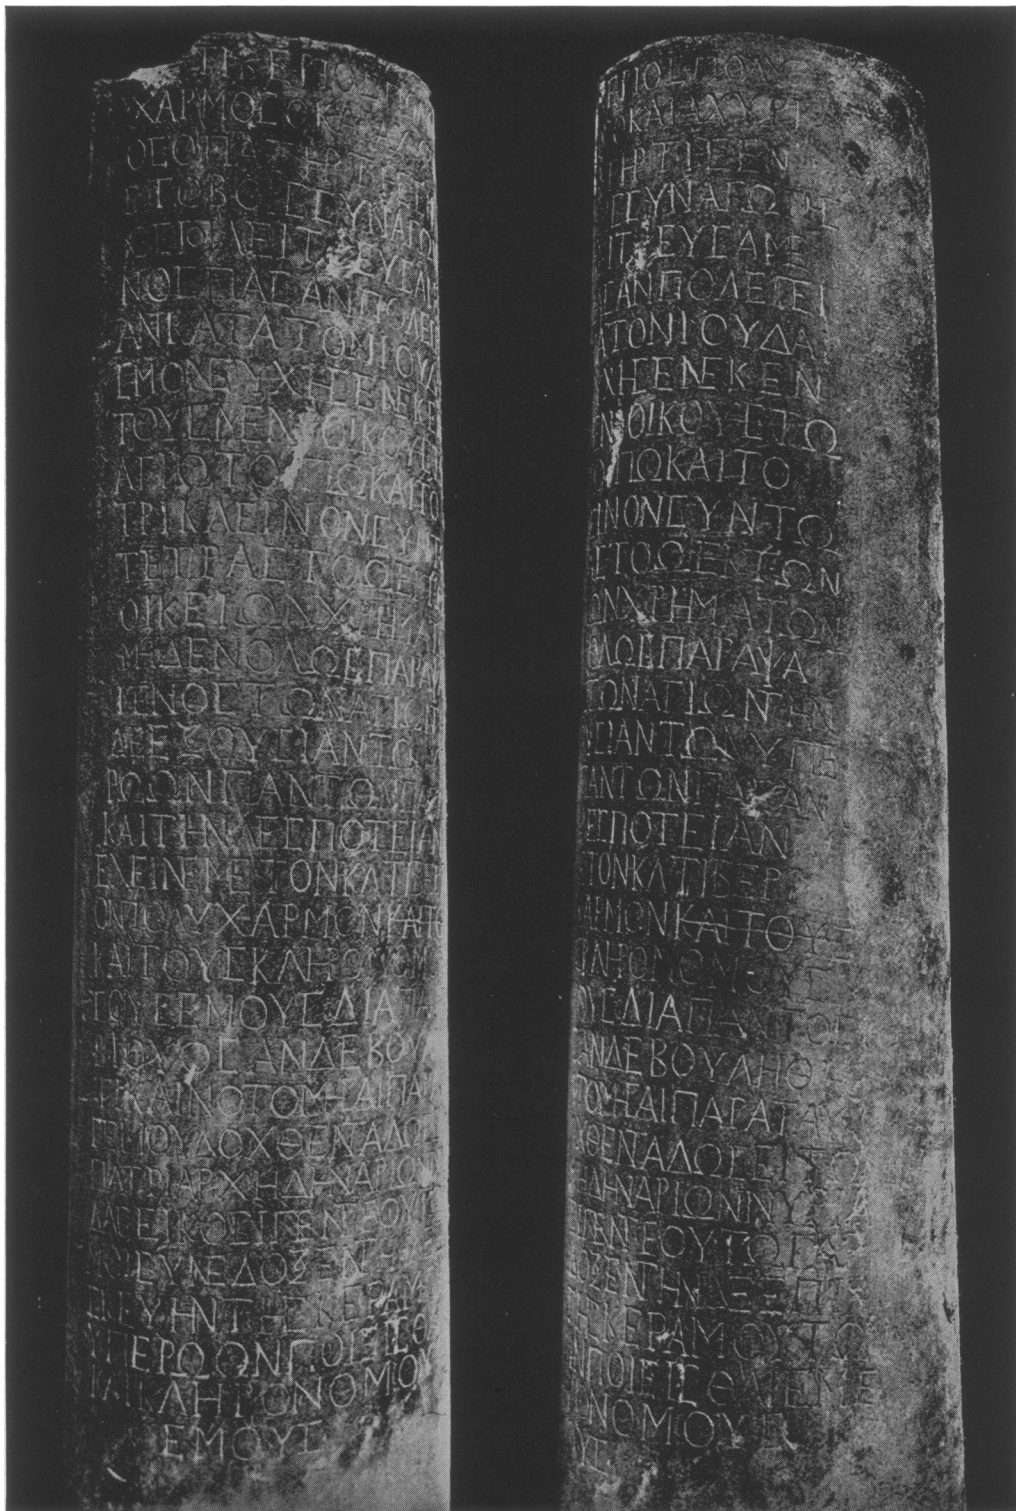 ΤΙΒΕΡΙΟΣ ΠΟ
ΧΑΡΜΟΣ Ο ΚΑΙ
ΟΣ Ο ΠΑΤΗΡ ΤΗΣ
ΣΤΟΒΟΙΣ ΣΥΝΑΓΩ
ΟΣ ΠΟΛΕΙΤΕΥΣΑΜ
ΝΟΣ ΠΑΣΑΝ ΠΟΛΕΙΤ
ΑΝ ΚΑΤΑ ΤΟΝ ΙΟΥΔΑ
ΣΜΟΝ ΕΥΧΗΣ ΕΝΕΚΕ
ΤΟΥΣ ΜΕΝ ΟΙΚΟΥΣ
ΑΓΙΩ ΤΟΠΩ ΚΑΙ ΤΟ
ΤΡΙΚΛΕΙΝΟΝ ΣΥΝ
ΤΕΤΡΑΣΤΟΩ ΕΚ
ΟΙΚΕΙΩΝ ΧΡΗΜΑ
ΜΗΔΕΝ ΟΛΩΣ ΠΑΡΑΨ
ΜΕΝΟΣ ΤΩΝ ΑΓΙ
ΔΕ ΕΞΟΥΣΙΑΝ ΤΩ
ΡΩΩΝ ΠΑΝΤΩΝ Π
ΚΑΙ ΤΗΝ ΔΕΣΠΟΤΕΙΑ
ΕΧΕΙΝ ΕΜΕ ΤΟΝ ΚΛ ΤΙΒΕ
ΟΝ ΠΟΛΥΧΑΡΜΟΝ ΚΑΙ ΤΟ
ΚΑΙ ΤΟΥΣ ΚΛΗΡΟΝΟΜΟΥ
ΤΟΥΣ ΕΜΟΥΣ ΔΙΑ ΠΑ
ΒΙΟΥ ΟΣ ΑΝ ΔΕ ΒΟΥ
ΤΙ ΚΑΙΝΟΤΟΜΗΣΑΙ ΠΑΡ
Π ΕΜΟΥ ΔΟΧΘΕΝΤΑ ΔΩΣ
ΠΑΤΡΙΑΡΧΗ ΔΗΝΑΡΙΩΝ
ΔΑΣ ΕΙΚΟΣΙ ΠΕΝΤΕ ΟΥΤ
ΜΟΙ ΣΥΝΕΔΟΞΕΝ ΤΗ
ΚΕΥΗΝ ΤΗΣ ΚΕΡΑΜΟΥ
ΥΠΕΡΩΩΝ ΠΟΙΕΙΣΘ
ΚΑΙ ΚΛΗΡΟΝΟΜΟΥ
ΕΜΟΥΣ
ΡΙΟΣ ΠΟΛΥ
ΚΑΙ ΑΧΥΡΙ
ΤΗΡ ΤΗΣ ΕΝ
Σ ΣΥΝΑΓΩΓΗΣ
ΙΤΕΥΣΑΜΕ
ΣΑΝ ΠΟΛΕΙΤΕΙ
ΑΤΟΝ ΙΟΥΔΑΙ
ΧΗΣ ΕΝΕΚΕΝ
Ν ΟΙΚΟΥΣ ΤΩ
ΟΠΩ ΚΑΙ ΤΟ
ΙΝΟΝ ΣΥΝ ΤΩ
ΑΣΤΟΩ ΕΚ ΤΩΝ
ΩΝ ΧΡΗΜΑΤΩΝ
ΟΛΩΣ ΠΑΡΑΨΑ
ΤΩΝ ΑΓΙΩΝ ΤΗΝ
ΣΙΑΝ ΤΩΝ ΥΠΕ
ΑΝΤΩΝ ΠΑΣΑΝ
ΕΣΠΟΤΕΙΑΝ
ΤΟΝ ΚΛ ΤΙΒΕΡΙ
ΑΡΜΟΝ ΚΑΙ ΤΟΥΣ
ΚΛΗΡΟΝΟΜΟΥΣ
ΟΥΣ ΔΙΑ ΠΑΝΤΟΣ
ΑΝ ΔΕ ΒΟΥΛΗΘΗ
ΟΜΗΣΑΙ ΠΑΡΑ ΤΑ Υ
ΧΘΕΝΤΑ ΔΩΣΕΙ ΤΩ
ΔΗΝΑΡΙΩΝ ΜΥΡΙΑ
ΠΕΝΤΕ ΟΥΤΩ ΓΑΡ
ΟΞΕΝ ΤΗΝ ΔΕ ΕΠΙΣ
ΗΣ ΚΕΡΑΜΟΥ ΤΩΝ
ΠΟΙΕΙΣΘΑΙ ΕΜΕ
ΝΟΜΟΥΣ
ΥΣ